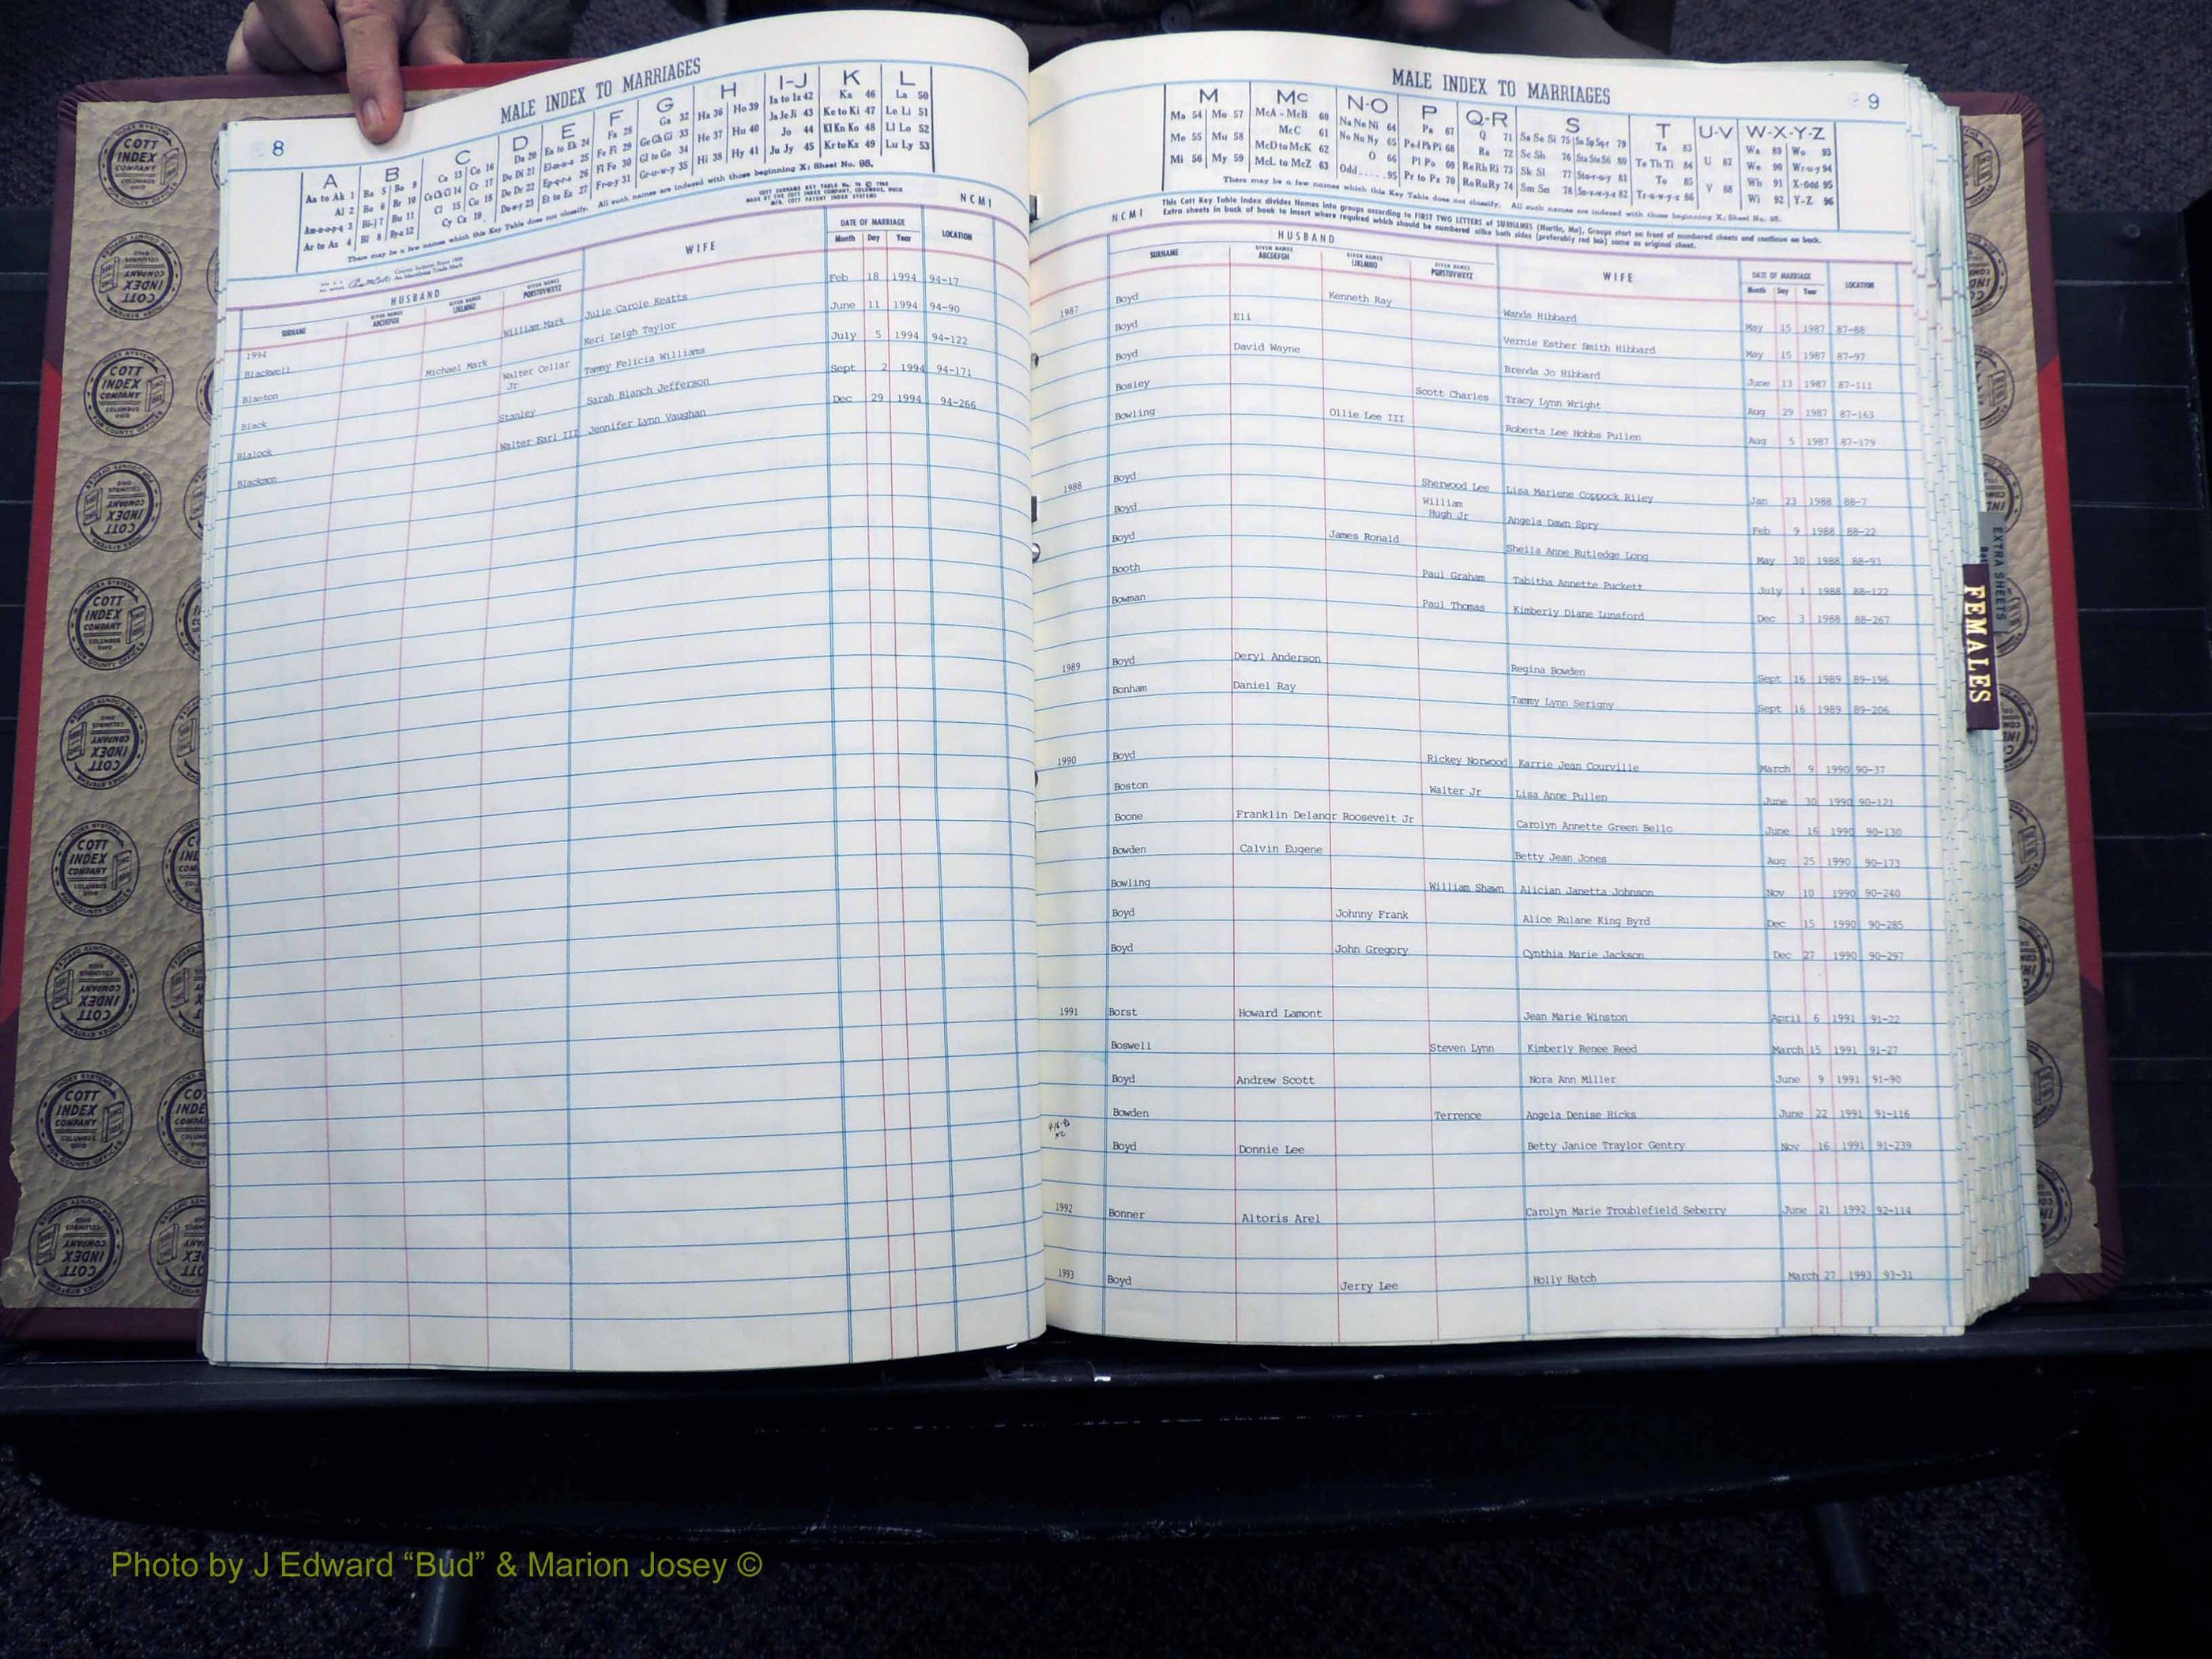 8
MALE INDEX TO MARRIAGES
A B C D E F G H I-J K L
Aa to Ak 1 Ba 5 Bo 9 Ca 13 Co 16 Da 20 Ea to Ek 24 Fa 28 Ga 32 Ha 36 Ho 39 Ia to Iz 42 Ka 46 La 50
Al 2 Be 6 Br 10 Ce Ch Ci 14 Cr 17 De Di 21 El-m-n-o 25 Fe Fi 29 Ge Gh Gi 33 He 37 Hu 40 Ja Je Ji 43 Ke to Ki 47 Le Li 51
Am-n-o-p-q 3 Bi-j 7 Bu 11 Cl 15 Cu 18 Do Dr 22 Ep-q-r-s 26 Fl Fo 30 Gl to Go 34 Hi 38 Hy 41 Jo 44 Kl Kn Ko 48 Ll Lo 52
Ar to As 4 Bl 8 By-z 12 Cy Cz 19 Du-w-y 23 Et to Ez 27 Fr-u-y 31 Gr-u-w-y 35 Ju Jy 45 Kr to Kz 49 Lu Ly 53
There may be a few names which this Key Table does not classify. All such names are indexed with those beginning X; Sheet No. 95.
NCMI
HUSBAND WIFE DATE OF MARRIAGE LOCATION
SURNAME GIVEN NAMES ABCDEFGH GIVEN NAMES IJKLMNO GIVEN NAMES PQRSTUVWXYZ Month Day Year
1994
Blackwell William Mark Julie Carole Keatts Feb 18 1994 94-17
Blanton Michael Mark Keri Leigh Taylor June 11 1994 94-90
Black Walter Cellar Jr Tammy Felicia Williams July 5 1994 94-122
Blalock Stanley Sarah Blanch Jefferson Sept 2 1994 94-171
Blackmon Walter Earl III Jennifer Lynn Vaughan Dec 29 1994 94-266
MALE INDEX TO MARRIAGES
9
M Mc N-O P Q-R S T U-V W-X-Y-Z
Ma 54 Mo 57 McA - McB 60 Na Ne Ni 64 Pa 67 Q 71 Sa Se Si 75 So Sp Sq-r 79 Ta 83 Wa 89 Wo 93
Me 55 Mu 58 McC 61 No Nu Ny 65 Pe-f Ph Pi 68 Ra 72 Sc Sh 76 Sta Ste Sti 80 Te Th Ti 84 U 87 We 90 Wr-u-y 94
Mi 56 My 59 McD to McK 62 O 66 Pl Po 69 Re Rh Ri 73 Sk Sl 77 Sto-r-u-y 81 To 85 Wh 91 X-Odd 95
McL to McZ 63 Odd 95 Pr to Pz 70 Ro Ru Ry 74 Sm Sn 78 Su-v-w-y-z 82 Tr-u-w-y-z 86 V 88 Wi 92 Y-Z 96
There may be a few names which this Key Table does not classify. All such names are indexed with those beginning X; Sheet No. 95.
This Cott Key Table Index divides Names into groups according to FIRST TWO LETTERS of SURNAMES (Martin, Ma), Groups start on front of numbered sheets and continue on back.
NCMI Extra sheets in back of book to insert where required which should be numbered alike both sides (preferably red ink) same as original sheet.
HUSBAND WIFE DATE OF MARRIAGE LOCATION
SURNAME GIVEN NAMES ABCDEFGH GIVEN NAMES IJKLMNO GIVEN NAMES PQRSTUVWXYZ Month Day Year
1987 Boyd Kenneth Ray Wanda Hibbard May 15 1987 87-88
Boyd Eli Vernie Esther Smith Hibbard May 15 1987 87-97
Boyd David Wayne Brenda Jo Hibbard June 13 1987 87-111
Bosley Scott Charles Tracy Lynn Wright Aug 29 1987 87-163
Bowling Ollie Lee III Roberta Lee Hobbs Pullen Aug 5 1987 87-179
1988 Boyd Sherwood Lee Lisa Marlene Coppock Riley Jan 23 1988 88-7
Boyd William Hugh Jr Angela Dawn Spry Feb 9 1988 88-22
Boyd James Ronald Sheila Anne Rutledge Long May 30 1988 88-93
Booth Paul Graham Tabitha Annette Puckett July 1 1988 88-122
Bowman Paul Thomas Kimberly Diane Lunsford Dec 3 1988 88-267
1989 Boyd Deryl Anderson Regina Bowden Sept 16 1989 89-196
Bonham Daniel Ray Tammy Lynn Serigny Sept 16 1989 89-206
1990 Boyd Rickey Norwood Karrie Jean Courville March 9 1990 90-37
Boston Walter Jr Lisa Anne Pullen June 30 1990 90-121
Boone Franklin Delanor Roosevelt Jr Carolyn Annette Green Bello June 16 1990 90-130
Bowden Calvin Eugene Betty Jean Jones Aug 25 1990 90-173
Bowling William Shawn Alician Janetta Johnson Nov 10 1990 90-240
Boyd Johnny Frank Alice Rulane King Byrd Dec 15 1990 90-285
Boyd John Gregory Cynthia Marie Jackson Dec 27 1990 90-297
1991 Borst Howard Lamont Jean Marie Winston April 6 1991 91-22
Boswell Steven Lynn Kimberly Renee Reed March 15 1991 91-27
Boyd Andrew Scott Nora Ann Miller June 9 1991 91-90
Bowden Terrence Angela Denise Hicks June 22 1991 91-116
Boyd Donnie Lee Betty Janice Traylor Gentry Nov 16 1991 91-239
1992 Bonner Altoris Arel Carolyn Marie Troublefield Seberry June 21 1992 92-114
1993 Boyd Jerry Lee Holly Hatch March 27 1993 93-31
EXTRA SHEETS
FEMALES
COTT INDEX COMPANY
COLUMBUS OHIO
INDEX SYSTEMS FOR COUNTY OFFICES
Photo by J Edward “Bud” & Marion Josey ©